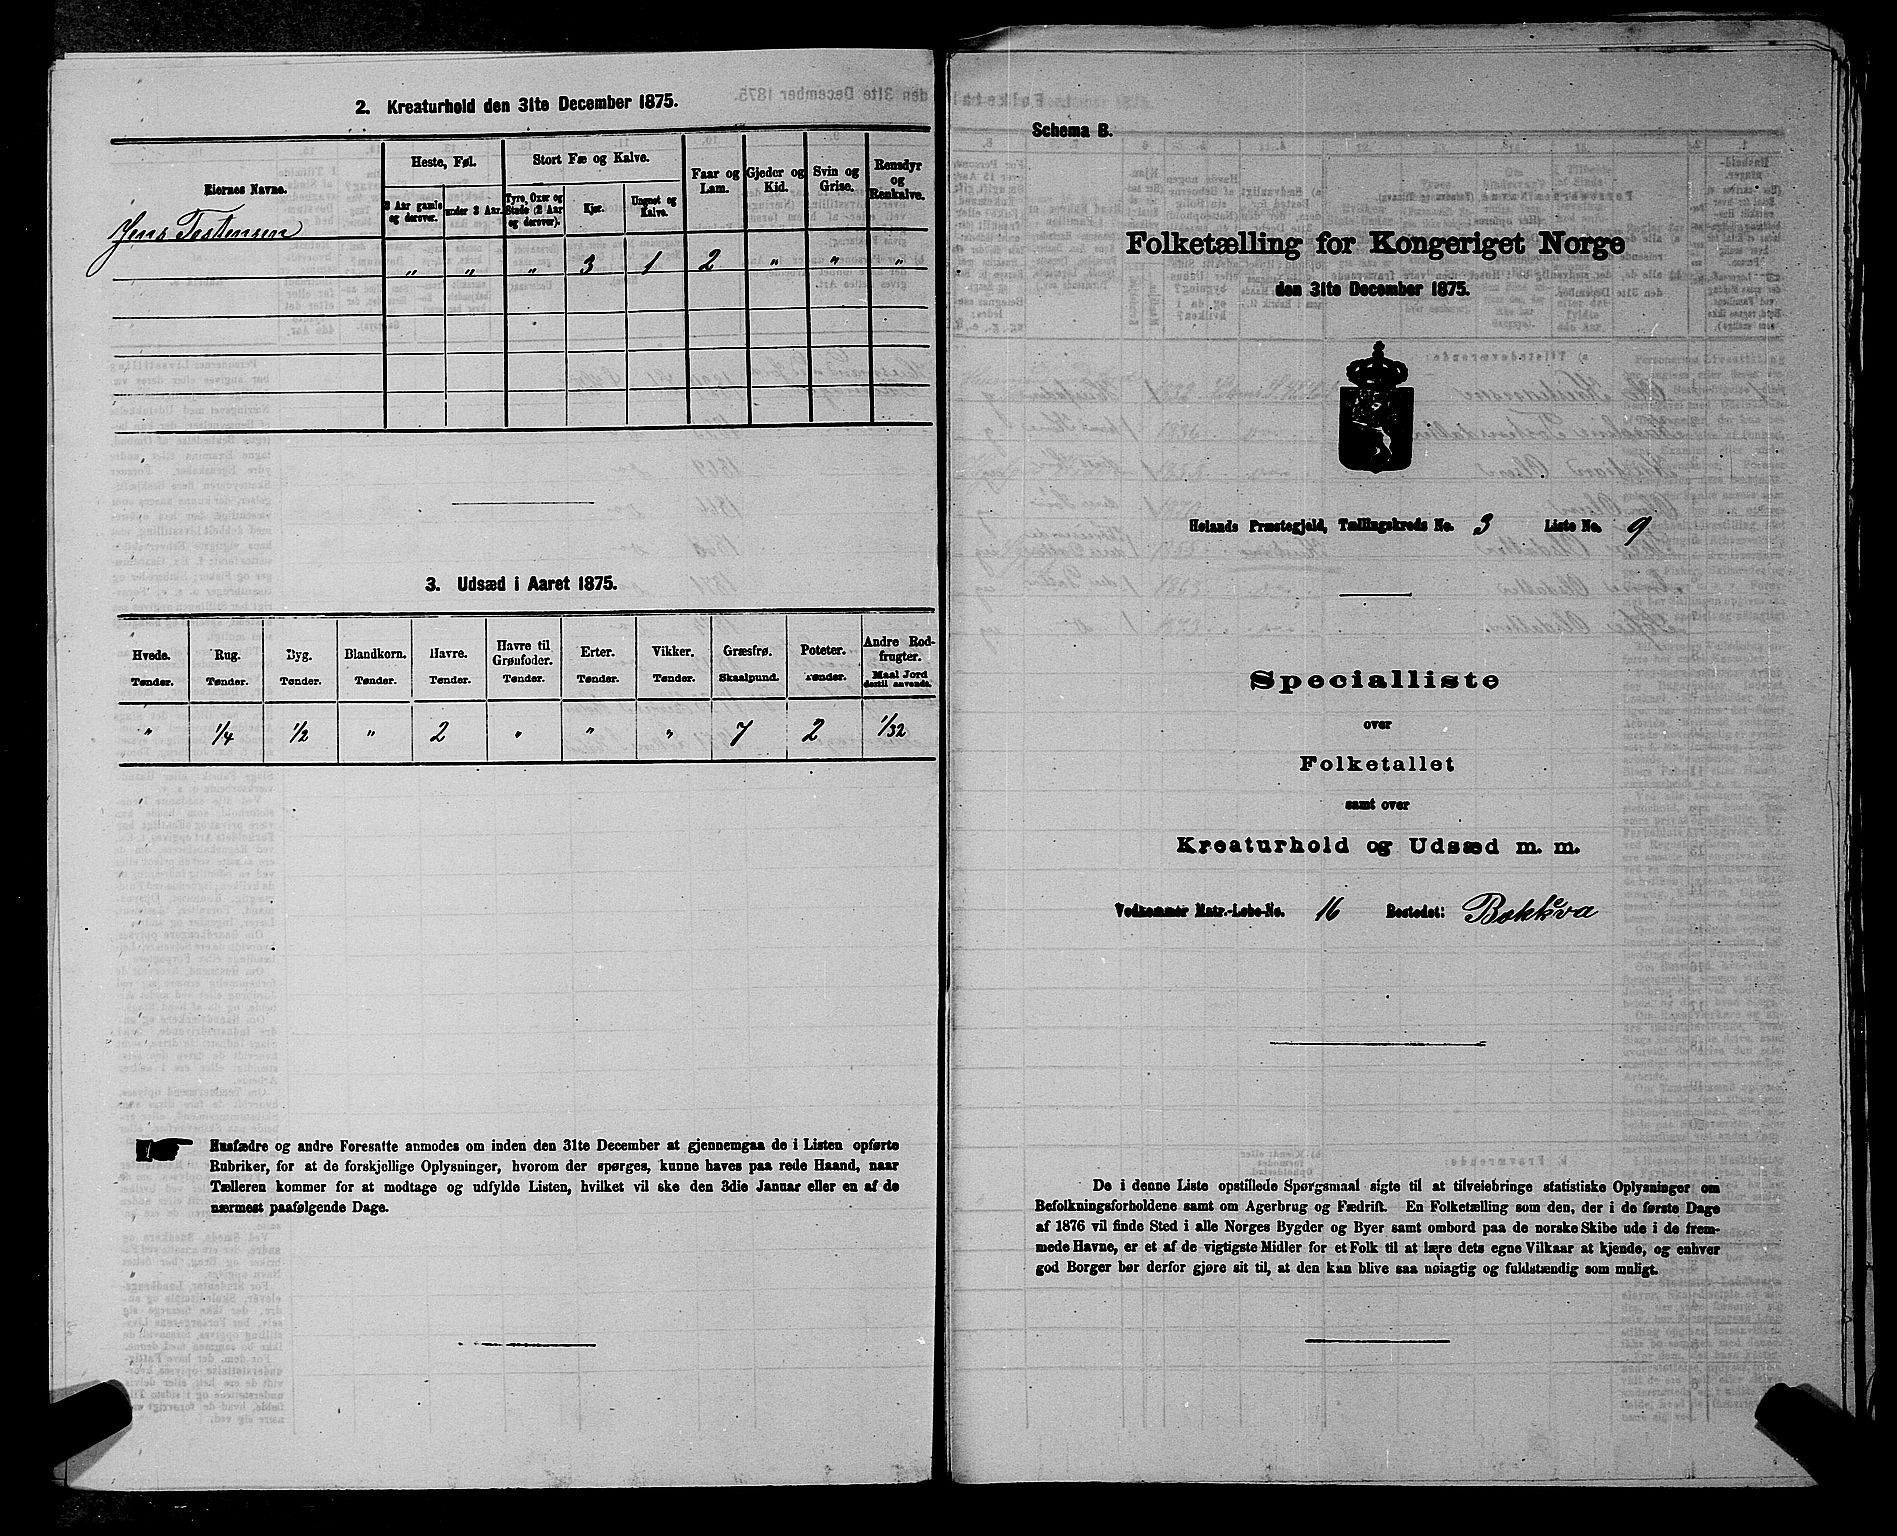 2. Kreaturhold den 31te December 1875.
Eiernes Navne.
Heste, Føl.
3 Aar gamle og derover.
under 3 Aar.
Stort Fæ og Kalve.
Tyre, Oxer og Stude (2 Aar og derover).
Kjør.
Ungnøt og Kalve.
Faar og Lam.
Gjeder og Kid.
Svin og Grise.
Rensdyr og Renkalve.
Jens Testensen
" " " 3 1 2 " " "
3. Udsæd i Aaret 1875.
Hvede. Rug. Byg. Blandkorn. Havre. Havre til Grønfoder. Erter. Vikker. Græsfrø. Poteter. Andre Rodfrugter.
Tønder. Tønder. Tønder. Tønder. Tønder. Tønder. Tønder. Tønder. Skaalpund. Tønder. Maal Jord dertil anvendt.
" 1/4 1/2 " 2 " " " 7 2 1/32
Husfædre og andre Foresatte anmodes om inden den 31te December at gjennemgaa de i Listen opførte
Rubriker, for at de forskjellige Oplysninger, hvorom der spørges, kunne haves paa rede Haand, naar
Tælleren kommer for at modtage og udfylde Listen, hvilket vil ske den 3die Januar eller en af de
nærmest paafølgende Dage.
Schema B.
Folketælling for Kongeriget Norge
den 31te December 1875.
Hølands Præstegjeld, Tællingskreds No. 3 Liste No. 9
Specialliste
over
Folketallet
samt over
Kreaturhold og Udsæd m. m.
Vedkommer Matr.-Løbe-No. 16 Bostedet: Bækkeva
De i denne Liste opstillede Spørgsmaal sigte til at tilveiebringe statistiske Oplysninger om
Befolkningsforholdene samt om Agerbrug og Fædrift. En Folketælling som den, der i de første Dage
af 1876 vil finde Sted i alle Norges Bygder og Byer samt ombord paa de norske Skibe ude i de frem-
mede Havne, er et af de vigtigste Midler for et Folk til at lære dets egne Vilkaar at kjende, og enhver
god Borger bør derfor gjøre sit til, at den kan blive saa nøiagtig og fuldstændig som muligt.